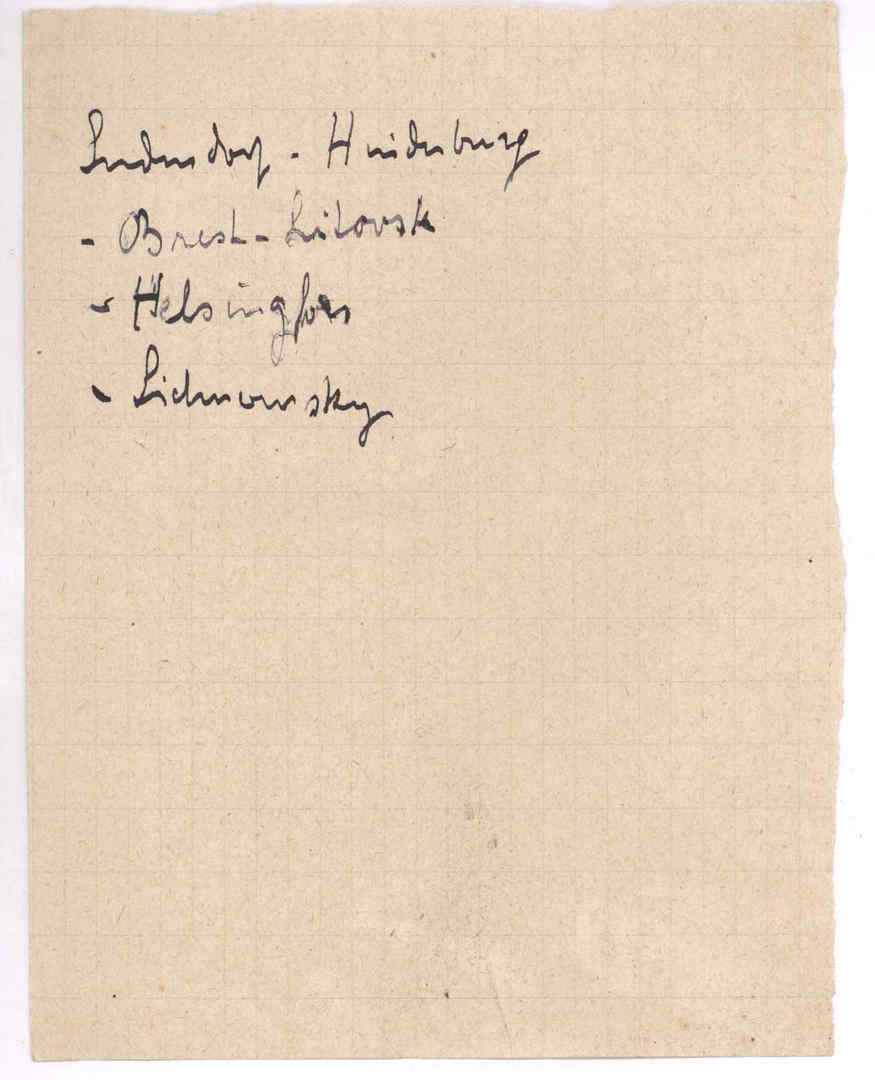 Ludendorf - Hindenburg
- Brest-Litovsk
- Helsingfors
- Lichnowsky